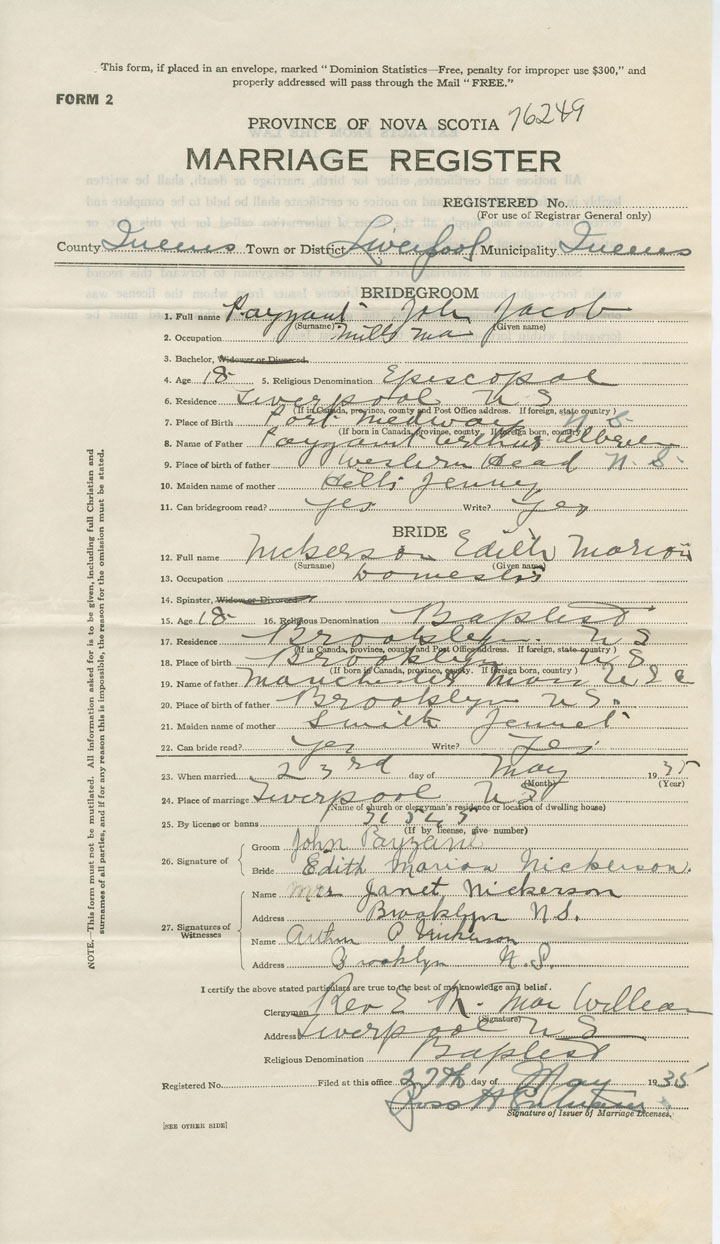 This form, if placed in an envelope, marked " Dominion Statistics—Free, penalty for improper use $300," and
properly addressed will pass through the Mail " FREE."
FORM 2
PROVINCE OF NOVA SCOTIA 76249
MARRIAGE REGISTER
REGISTERED No.
(For use of Registrar General only)
County Queens Town or District Liverpool Municipality Queens
BRIDEGROOM
1. Full name Payzant John Jacob
(Surname) (Given name)
2. Occupation Mills man
3. Bachelor, Widower or Divorced
4. Age 18 5. Religious Denomination Episcopal
6. Residence Liverpool N S
(If in Canada, province, county and Post Office address. If foreign, state country)
7. Place of Birth Port Medway N S
(If born in Canada, province, county. If foreign born, country)
8. Name of Father Payzant Arthur Albert
9. Place of birth of father Western Head N. S.
10. Maiden name of mother Jenney
11. Can bridegroom read? yes Write? yes
BRIDE
12. Full name Nickerson Edith Marion
(Surname) (Given name)
13. Occupation Domestic
14. Spinster, Widow or Divorced
15. Age 18 16. Religious Denomination Baptist
17. Residence Brooklyn. N S
(If in Canada, province, county and Post Office address. If foreign, state country)
18. Place of birth Brooklyn N S
(If born in Canada, province, county. If foreign born, country)
19. Name of father Manchester Mass U S A
20. Place of birth of father Brooklyn N S.
21. Maiden name of mother Smith Jennet
22. Can bride read? yes Write? Yes
23. When married 23rd day of May 1935
(Month) (Year)
24. Place of marriage Liverpool N S
(Name of church or clergyman's residence or location of dwelling house)
25. By license or banns
(If by license, give number)
26. Signature of
Groom John Payzant
Bride Edith Marion Nickerson.
27. Signatures of Witnesses
Name Mrs Janet Nickerson
Address Brooklyn N.S.
Name Arthur P Nickerson
Address Brooklyn N.S.
I certify the above stated particulars are true to the best of my knowledge and belief.
Clergyman Rev E Mac William
(Signature)
Address Liverpool N S
Religious Denomination Baptist
Registered No. Filed at this office 27th day of May 1935
Signature of Issuer of Marriage Licenses.
[SEE OTHER SIDE]
NOTE.—This form must not be mutilated. All information asked for is to be given, including full Christian and
surnames of all parties, and if for any reason this is impossible, the reason for the omission must be stated.